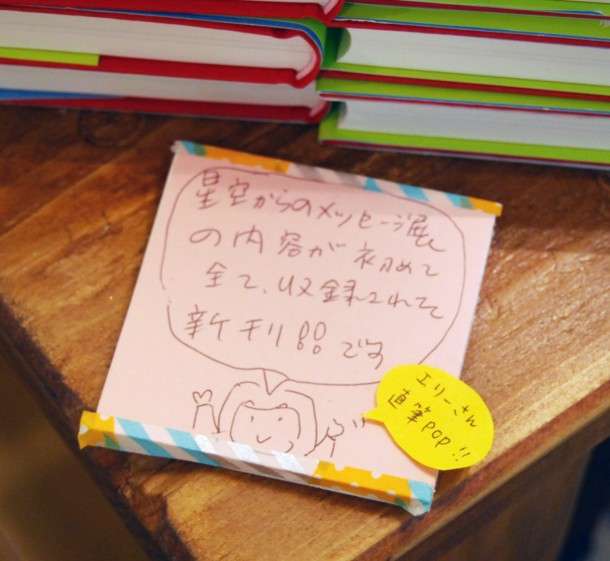 星空からのメッセージ展
の内容が初めて
全て、収録されてて
新刊!!です
エリーさん
直筆POP!!